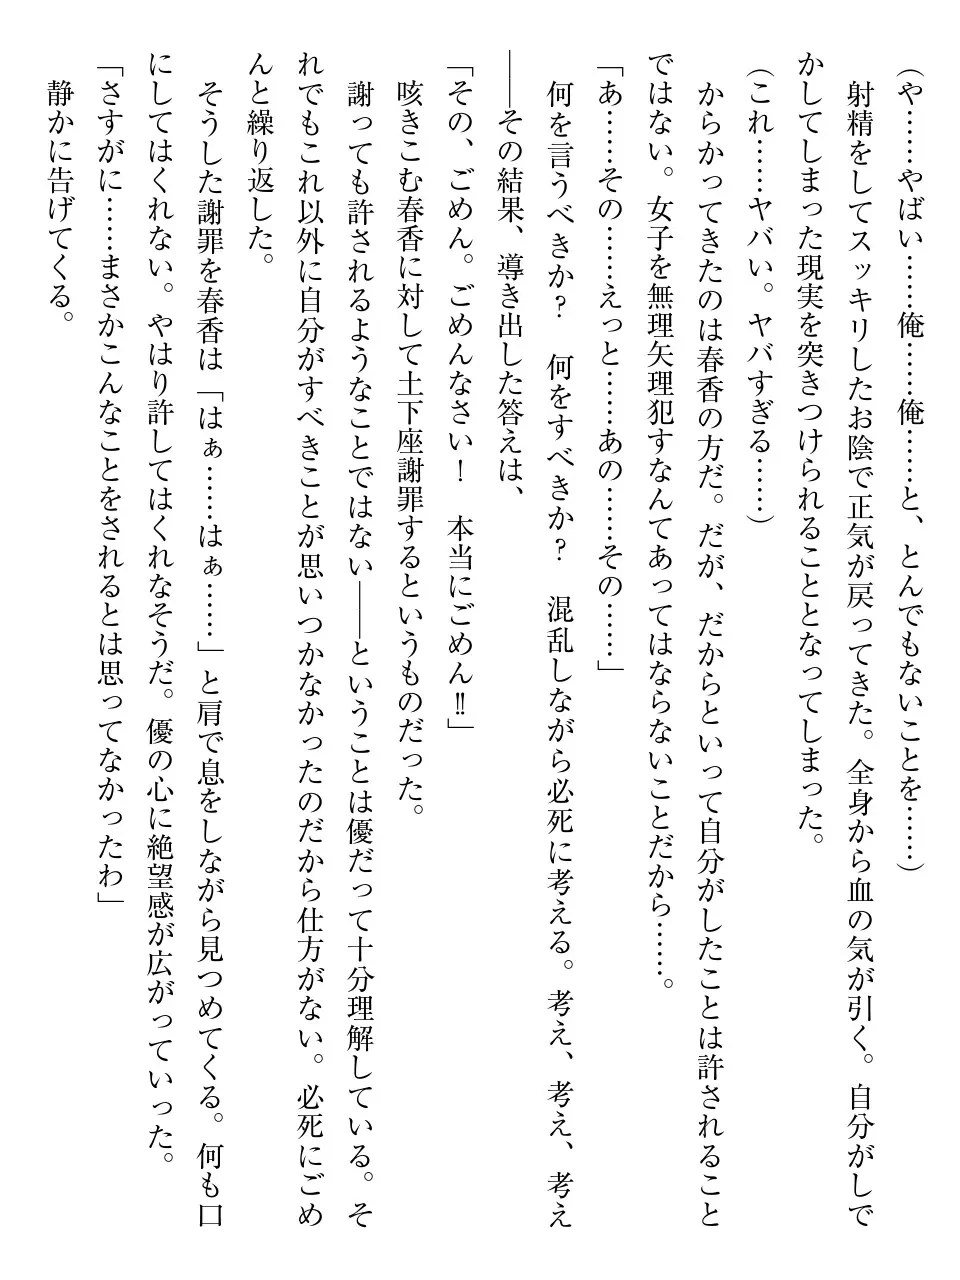 (や……やばい……俺……俺……と、とんでもないことを……)
　射精をしてスッキリしたお陰で正気が戻ってきた。全身から血の気が引く。自分がしで
かしてしまった現実を突きつけられることとなってしまった。
(これ……ヤバい。ヤバすぎる……)
　からかってきたのは春香の方だ。だが、だからといって自分がしたことは許されること
ではない。女子を無理矢理犯すなんてあってはならないことだから……。
「あ……その……えっと……あの……その……」
　何を言うべきか?　何をすべきか?　混乱しながら必死に考える。考え、考え、考え
――その結果、導き出した答えは、
「その、ごめん。ごめんなさい!　本当にごめん!!」
　咳きこむ春香に対して土下座謝罪するというものだった。
　謝っても許されるようなことではない――ということは優だって十分理解している。そ
れでもこれ以外に自分がすべきことが思いつかなかったのだから仕方がない。必死にごめ
んと繰り返した。
　そうした謝罪を春香は「はぁ……はぁ……」と肩で息をしながら見つめてくる。何も口
にしてはくれない。やはり許してはくれなそうだ。優の心に絶望感が広がっていった。
「さすがに……まさかこんなことをされるとは思ってなかったわ」
　静かに告げてくる。